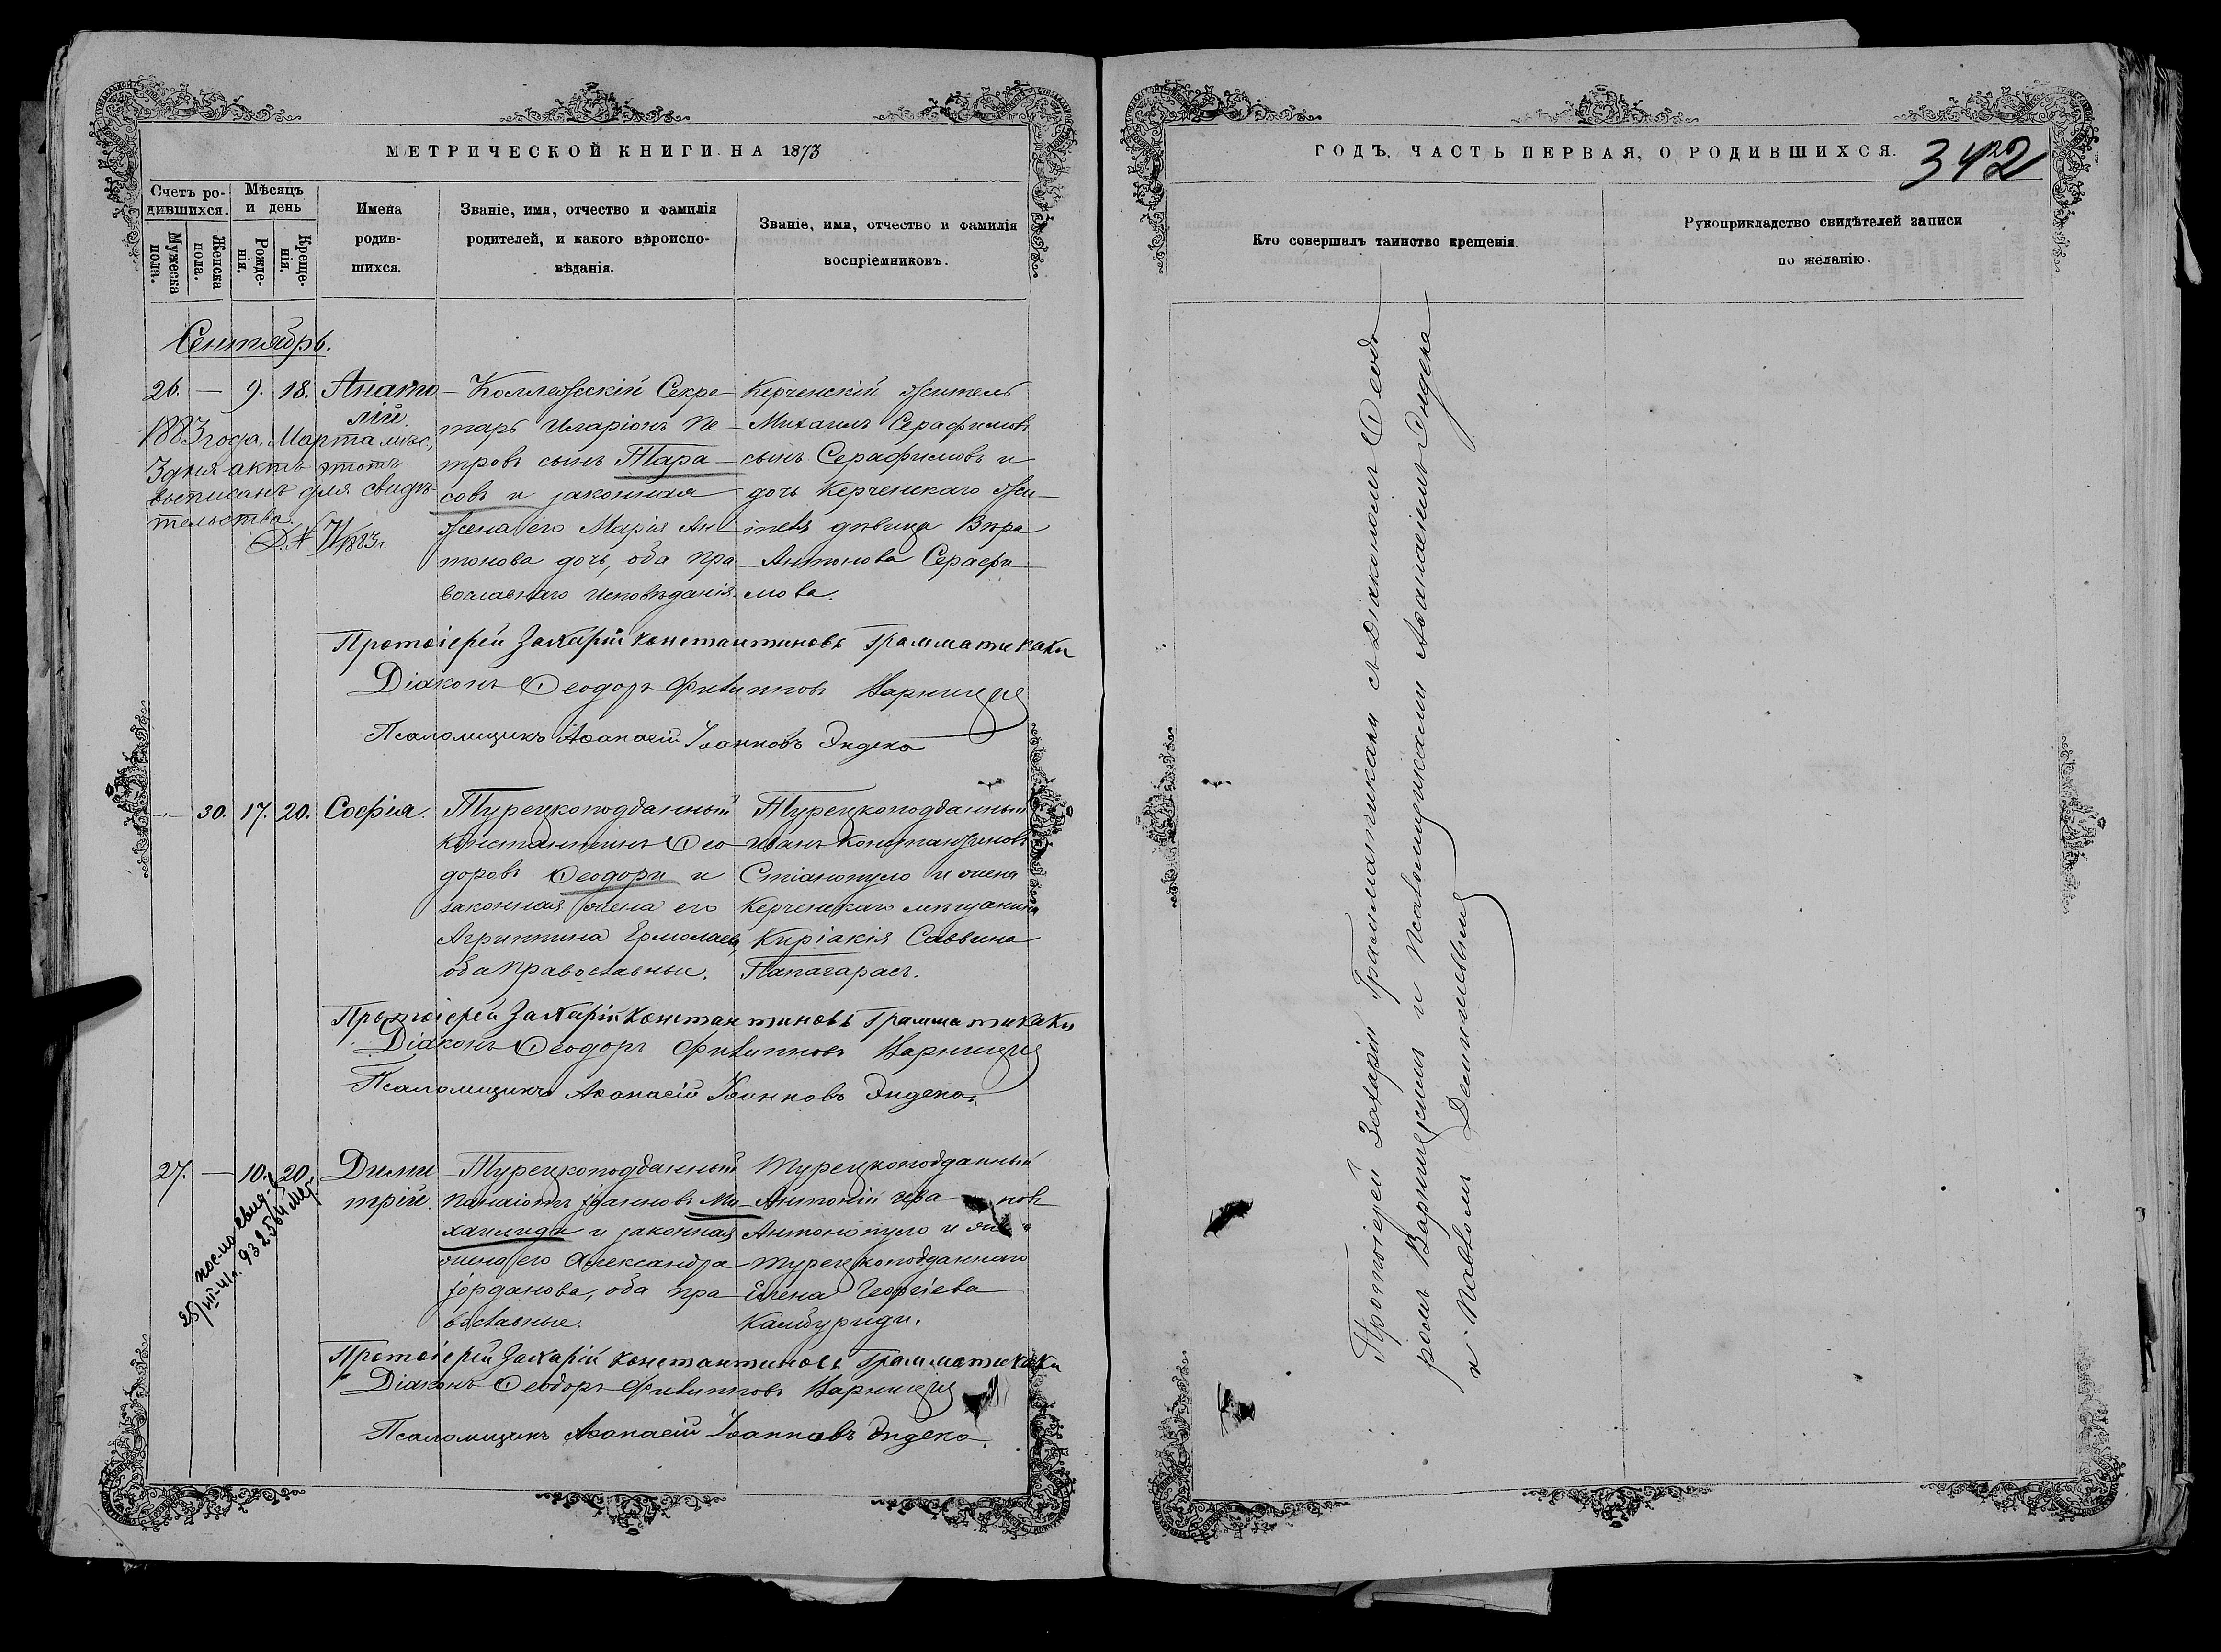 МЕТРИЧЕСКОЙ КНИГИ НА 1873
Счетъ ро-
дившихся.
Мѣсяцъ
и день
Мужеска
пола.
Женска
пола.
Рожде-
нія.
Креще-
нія.
Имена
родив-
шихся.
Званіе, имя, отчество и фамилія
родителей, и какого вѣроиспо-
вѣданія.
Званіе, имя, отчество и фамилія
воспріемниковъ.
Сентябрь.
26. — 9. 18. Анато
лій.
1883 года, Марта мѣс.,
3 дня актъ этотъ
выписанъ для свидѣ-
тельства.
Д. № 71/1883 г.
Коллежскій Секре-
тарь Иларіонъ Пе-
тровъ сынъ Тара-
совъ и законная
жена его Марія Ан-
тонова дочь, оба пра-
вославнаго исповѣданія.
Керченскій житель
Михаилъ Серафимовъ
сынъ Серафимовъ и
дочь Керченскаго жи-
теля дѣвица Вѣра
Антонова Серафи-
мова.
Протоіерей Захарій Константиновъ Грамматикаки
Діаконъ Ѳеодоръ Филипповъ Варницкій
Псаломщикъ Аѳанасій Іоанновъ Эндека
— 30. 17. 20. Софія.
Турецкоподданный
Константинъ Ѳео
доровъ Ѳеодори и
законная жена его
Агриппина Ермолаева,
оба православные.
Турецкоподданный
Иванъ Константиновъ
Стіанопуло и жена
Керченскаго мѣщанина
Киріакія Саввина
Папагарасъ.
Протоіерей Захарій Константиновъ Грамматикаки
Діаконъ Ѳеодоръ Филипповъ Варницкій
Псаломщикъ Аѳанасій Іоанновъ Эндека.
27. — 10. 20. Дими
трій.
Турецкоподданный
Панаіотъ Іоанновъ Ми-
хаилиди и законная
жена его Александра
Іорданова, оба пра
вославные.
Турецкоподданный
Антоній Ива новъ
Антонопуло и
турецкоподданнаго
Елена Георгіева
Камбуриди.
Протоіерей Захарій Константиновъ Грамматикаки
Діаконъ Ѳеодоръ Филипповъ Варницкій
Псаломщикъ Аѳанасій Іоанновъ Эндека.
ГОДЪ, ЧАСТЬ ПЕРВАЯ, О РОДИВШИХСЯ.
342
Кто совершалъ таинство крещенія.
Рукоприкладство свидѣтелей записи
по желанію.
Протоіерей Захарій Грамматикаки съ Діакономъ Ѳеодо
ромъ Варницкимъ и Псаломщиками Аѳанасіемъ Эндека
и Павломъ